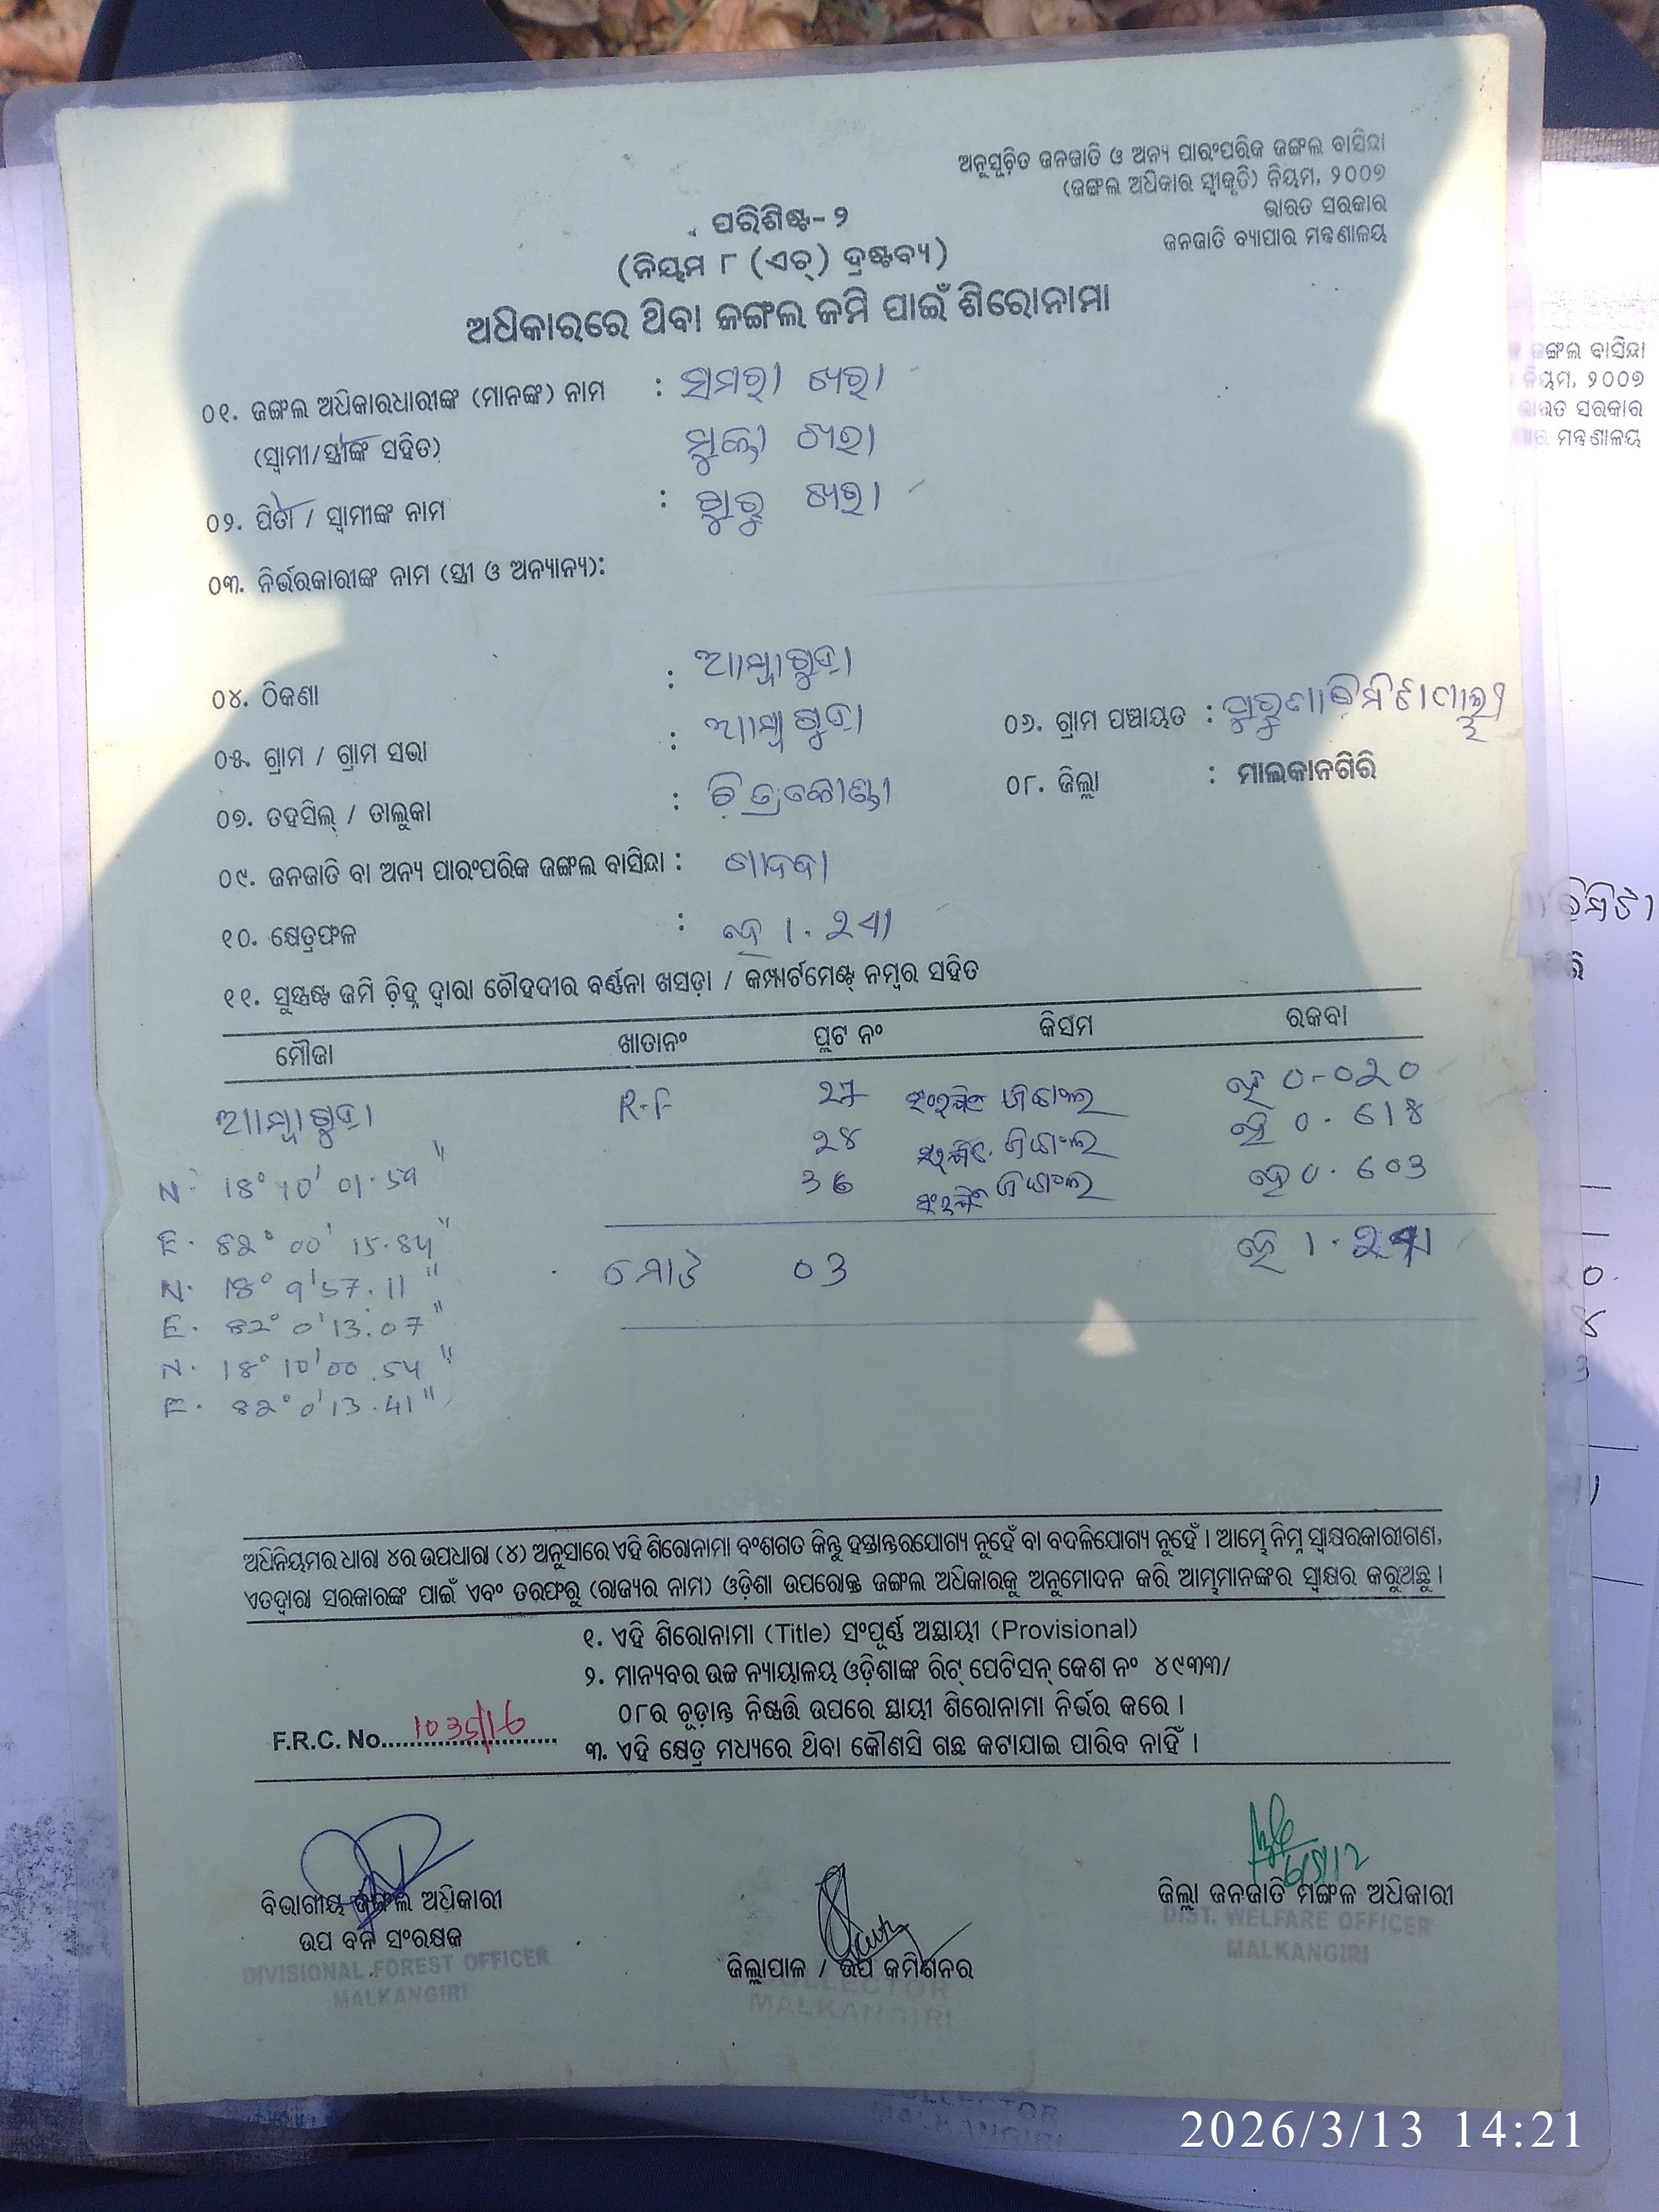 ଅନୁସୂଚିତ ଜନଜାତି ଓ ଅନ୍ୟ ପାରଂପରିକ ଜଙ୍ଗଲ ବାସିନ୍ଦା
(ଜଙ୍ଗଲ ଅଧିକାର ସ୍ୱୀକୃତି) ନିୟମ, ୨୦୦୭
ଭାରତ ସରକାର
ଜନଜାତି ବ୍ୟାପାର ମନ୍ତ୍ରଣାଳୟ
ପରିଶିଷ୍ଟ-୨
(ନିୟମ ୮ (ଏଚ୍) ଦ୍ରଷ୍ଟବ୍ୟ)
ଅଧିକାରରେ ଥିବା ଜଙ୍ଗଲ ଜମି ପାଇଁ ଶିରୋନାମା
୦୧. ଜଙ୍ଗଲ ଅଧିକାରଧାରୀଙ୍କ (ମାନଙ୍କ) ନାମ : ସମରା ଖରା
(ସ୍ୱାମୀ/ସ୍ତ୍ରୀଙ୍କ ସହିତ) ଖରା
୦୨. ପିତା / ସ୍ୱାମୀଙ୍କ ନାମ : ଖରା
୦୩. ନିର୍ଭରକାରୀଙ୍କ ନାମ (ସ୍ତ୍ରୀ ଓ ଅନ୍ୟାନ୍ୟ):
୦୪. ଠିକଣା : ଆମ୍ବାଗୁଡ଼ା
୦୫. ଗ୍ରାମ / ଗ୍ରାମ ସଭା : ଆମ୍ବାଗୁଡ଼ା ୦୬. ଗ୍ରାମ ପଞ୍ଚାୟତ :
୦୭. ତହସିଲ୍ / ତାଲୁକା : ଚିତ୍ରକୋଣ୍ଡା ୦୮. ଜିଲ୍ଲା : ମାଲକାନଗିରି
୦୯. ଜନଜାତି ବା ଅନ୍ୟ ପାରଂପରିକ ଜଙ୍ଗଲ ବାସିନ୍ଦା : ଗାଦବା
୧୦. କ୍ଷେତ୍ରଫଳ : ହେ
୧୧. ସୁସ୍ପଷ୍ଟ ଜମି ଚିହ୍ନ ଦ୍ୱାରା ଚୌହଦୀର ବର୍ଣ୍ଣନା ଖସଡ଼ା / କମ୍ପାର୍ଟମେଣ୍ଟ୍ ନମ୍ବର ସହିତ
ମୌଜା ଖାତାନଂ ପ୍ଲଟ ନଂ କିସମ ରକବା
ଆମ୍ବାଗୁଡ଼ା R.F ସଂରକ୍ଷିତ ଜଙ୍ଗଲ ହେ 0-020
ସଂରକ୍ଷିତ ଜଙ୍ଗଲ ହେ
36 ସଂରକ୍ଷିତ ଜଙ୍ଗଲ ହେ 0.603
N. 18° 10' 01.59"
E. 82° 00' 15.84"
ମୋଟ 03 ହେ
N. 18° 9' 57.11"
E. 82° 0' 13.07"
N. 18° 10' 00.54"
E. 82° 0' 13.41"
ଅଧିନିୟମର ଧାରା ୪ର ଉପଧାରା (୪) ଅନୁସାରେ ଏହି ଶିରୋନାମା ବଂଶଗତ କିନ୍ତୁ ହସ୍ତାନ୍ତରଯୋଗ୍ୟ ନୁହେଁ ବା ବଦଳିଯୋଗ୍ୟ ନୁହେଁ । ଆମ୍ଭେ ନିମ୍ନ ସ୍ୱାକ୍ଷରକାରୀଗଣ,
ଏତଦ୍ୱାରା ସରକାରଙ୍କ ପାଇଁ ଏବଂ ତରଫରୁ (ରାଜ୍ୟର ନାମ) ଓଡ଼ିଶା ଉପରୋକ୍ତ ଜଙ୍ଗଲ ଅଧିକାରକୁ ଅନୁମୋଦନ କରି ଆମ୍ଭମାନଙ୍କର ସ୍ୱାକ୍ଷର କରୁଅଛୁ ।
୧. ଏହି ଶିରୋନାମା (Title) ସଂପୂର୍ଣ୍ଣ ଅସ୍ଥାୟୀ (Provisional)
୨. ମାନ୍ୟବର ଉଚ୍ଚ ନ୍ୟାୟାଳୟ ଓଡ଼ିଶାଙ୍କ ରିଟ୍ ପେଟିସନ୍ କେଶ ନଂ ୪୯୩୩/
୦୮ର ଚୂଡ଼ାନ୍ତ ନିଷ୍ପତ୍ତି ଉପରେ ସ୍ଥାୟୀ ଶିରୋନାମା ନିର୍ଭର କରେ ।
F.R.C. No. 1035/16
୩. ଏହି କ୍ଷେତ୍ର ମଧ୍ୟରେ ଥିବା କୌଣସି ଗଛ କଟାଯାଇ ପାରିବ ନାହିଁ ।
ବିଭାଗୀୟ ଜଙ୍ଗଲ ଅଧିକାରୀ
ଉପ ବନ ସଂରକ୍ଷକ
DIVISIONAL FOREST OFFICER
MALKANGIRI
ଜିଲ୍ଲାପାଳ / ଉପ କମିଶନର
COLLECTOR
MALKANGIRI
ଜିଲ୍ଲା ଜନଜାତି ମଙ୍ଗଳ ଅଧିକାରୀ
DIST. WELFARE OFFICER
MALKANGIRI
ଜଙ୍ଗଲ ବାସିନ୍ଦା
ନିୟମ, ୨୦୦୭
ଭାରତ ସରକାର
ମନ୍ତ୍ରଣାଳୟ
2026/3/13 14:21